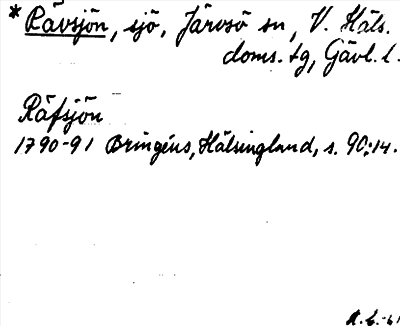 * Rävsjön, sjö, Järvsö sn, V. Häls.
doms. tg, Gävl. l.
Räfsjön
1790-91 Bringéus, Hälsingland, s. 90:14.